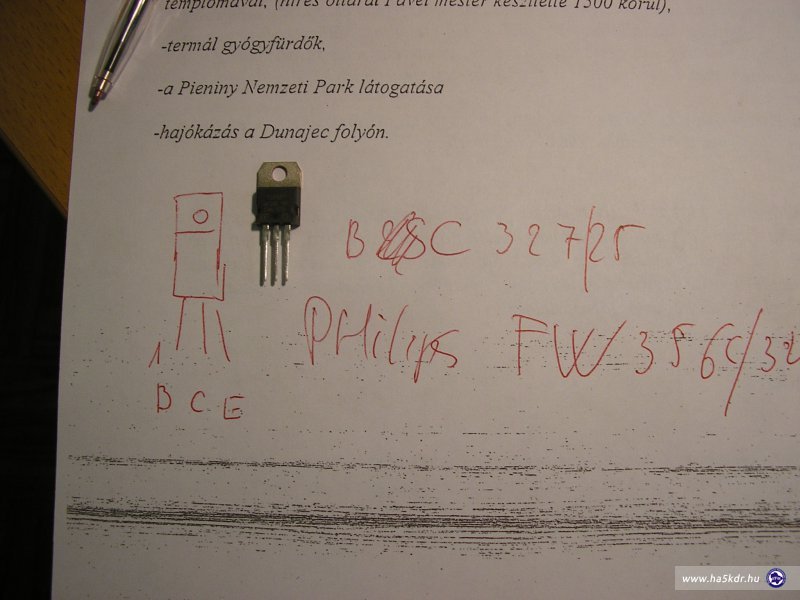 templomával, (híres oltárát Pavel mester készítette 1500 körül),
-termál gyógyfürdők,
-a Pieniny Nemzeti Park látogatása
-hajókázás a Dunajec folyón.
B C 327/25
PHilips FW 356C/32
1
B C E
www.ha5kdr.hu